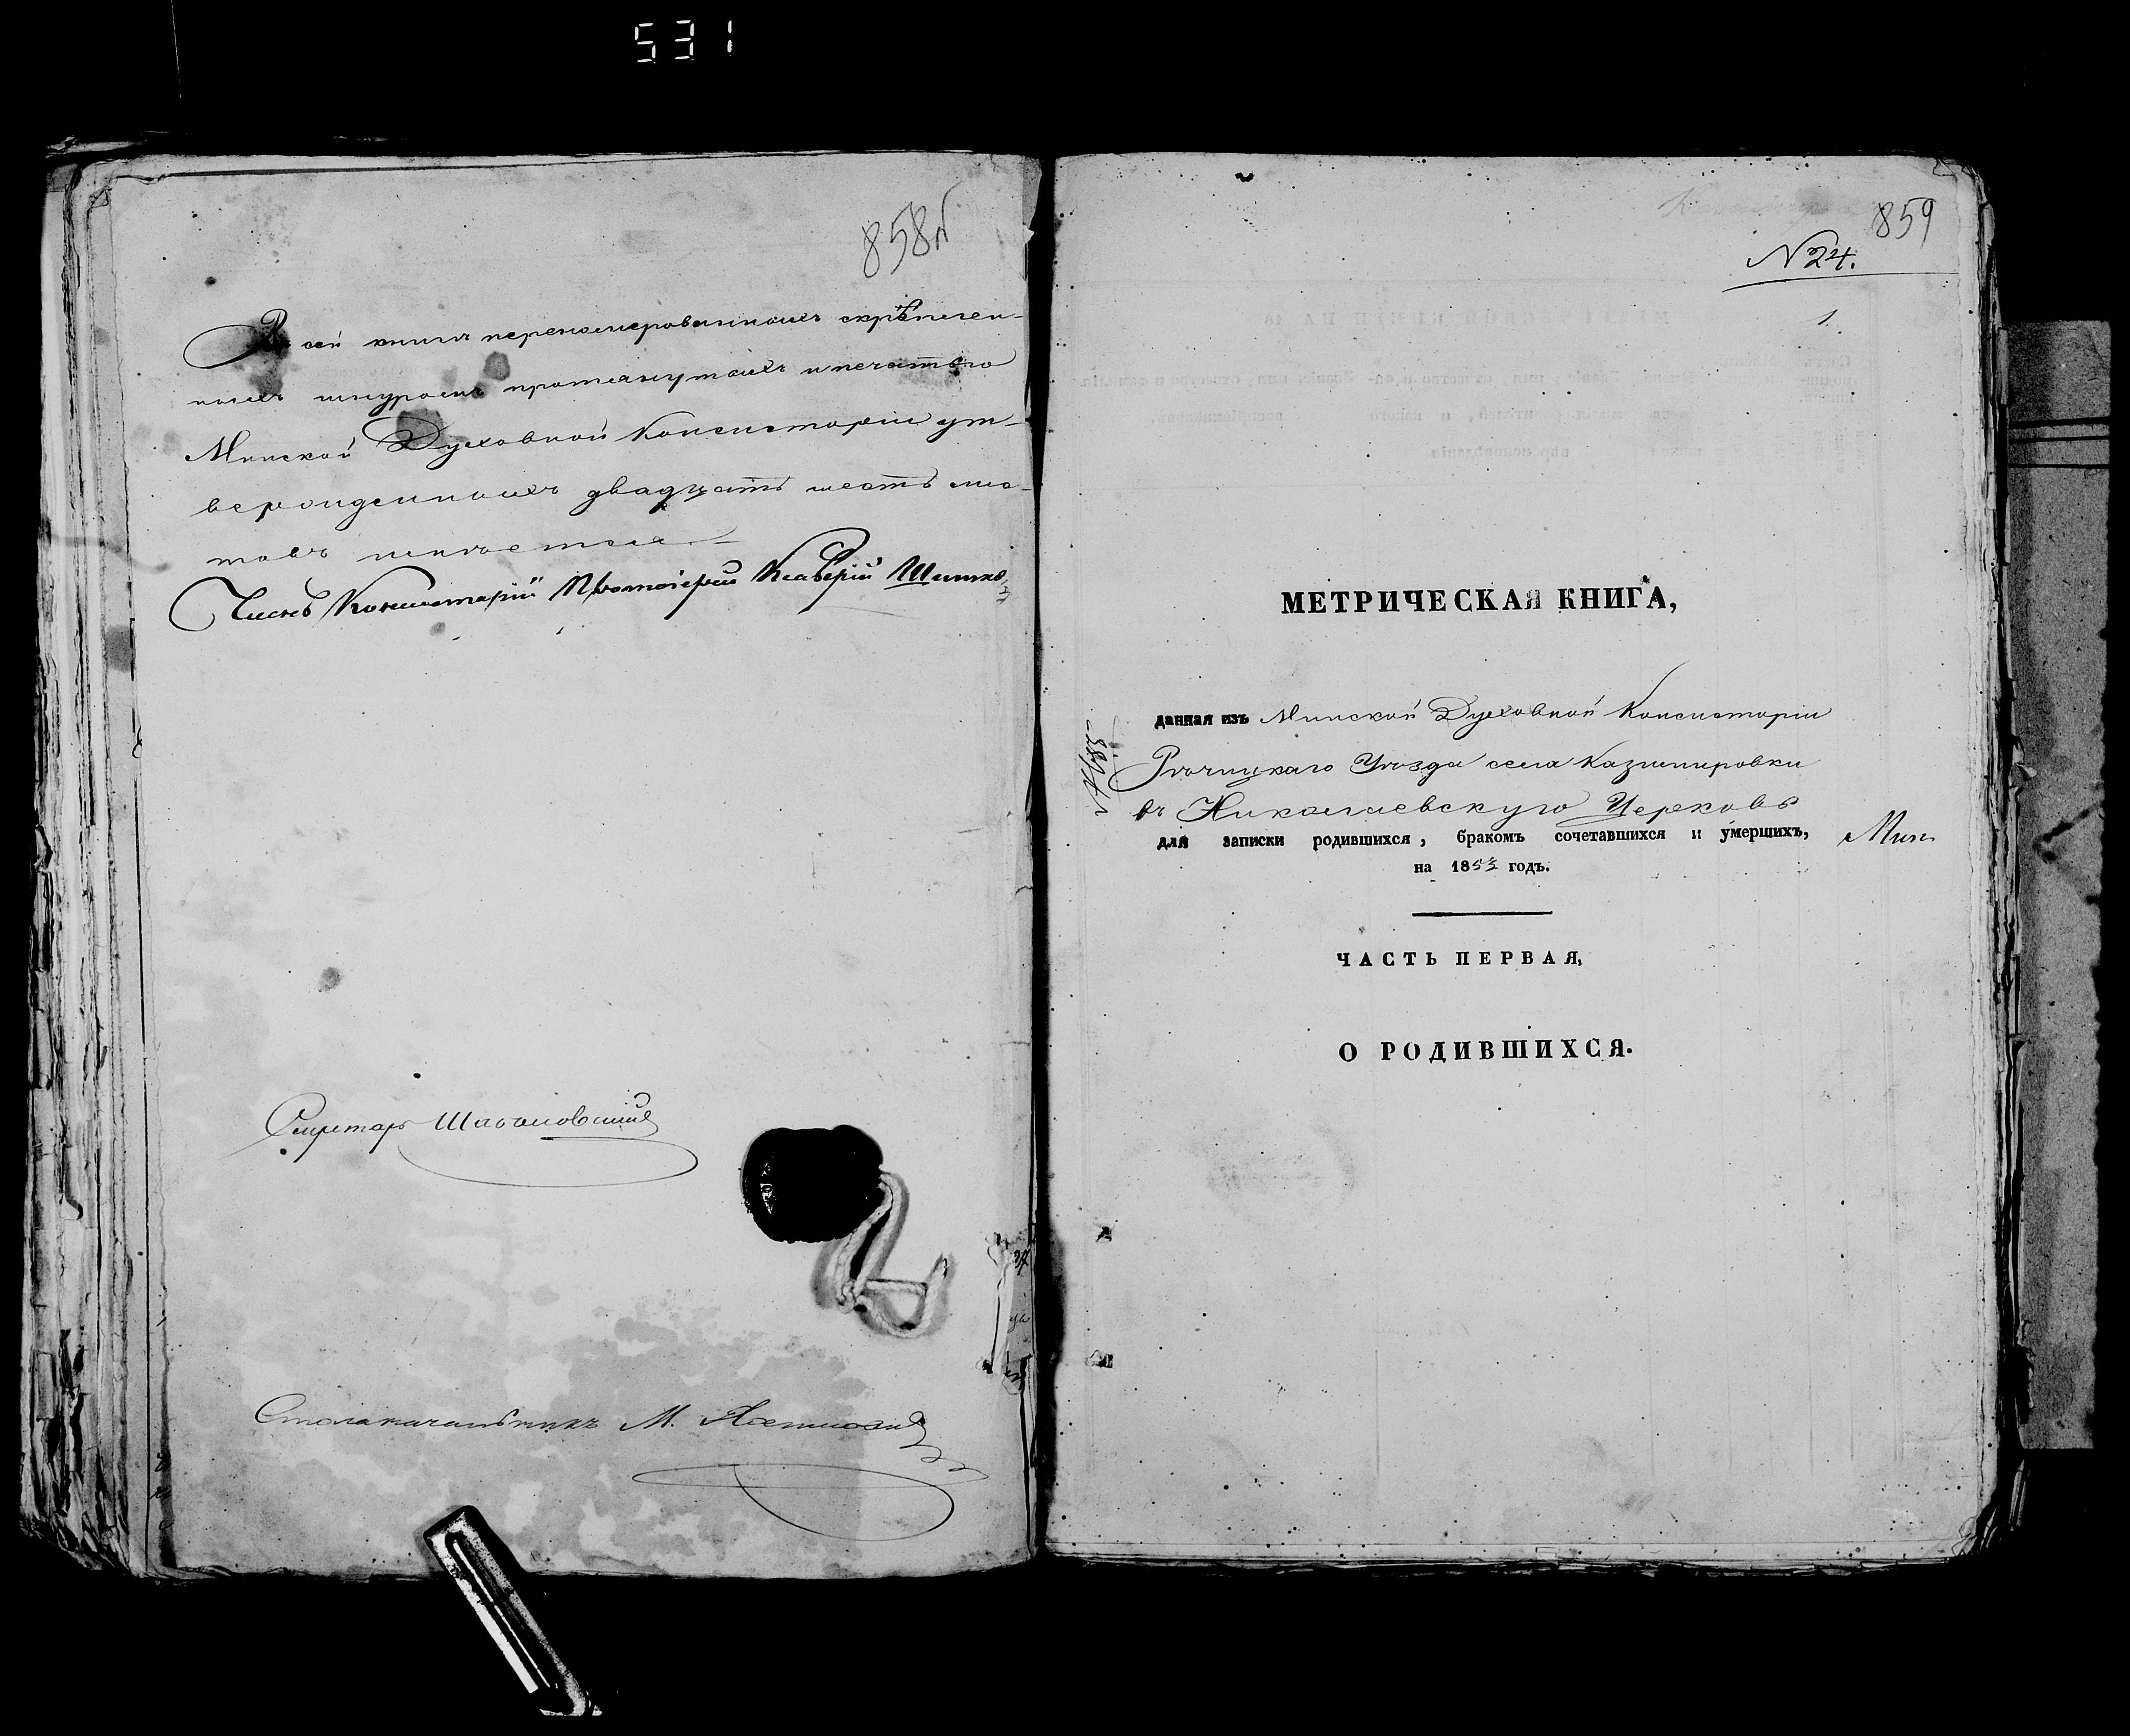 531
858б
Въ сей книгѣ перенумерованныхъ скрѣплен-
ныхъ шнуромъ протянутыхъ и печатью
Минской Духовной Консисторіи ут-
вержденныхъ двадцать шесть лис-
товъ имѣется
Членъ Консисторіи Протоіерей
Секретарь
Столоначальникъ М.
859
N 24.
1.
МЕТРИЧЕСКАЯ КНИГА,
данная изъ Минской Духовной Консисторіи
Рѣчицкаго Уѣзда села Казимировки
въ Николаевскую Церковь
для записки родившихся, бракомъ сочетавшихся и умершихъ,
Мин
на 185 годъ.
ЧАСТЬ ПЕРВАЯ,
О РОДИВШИХСЯ.